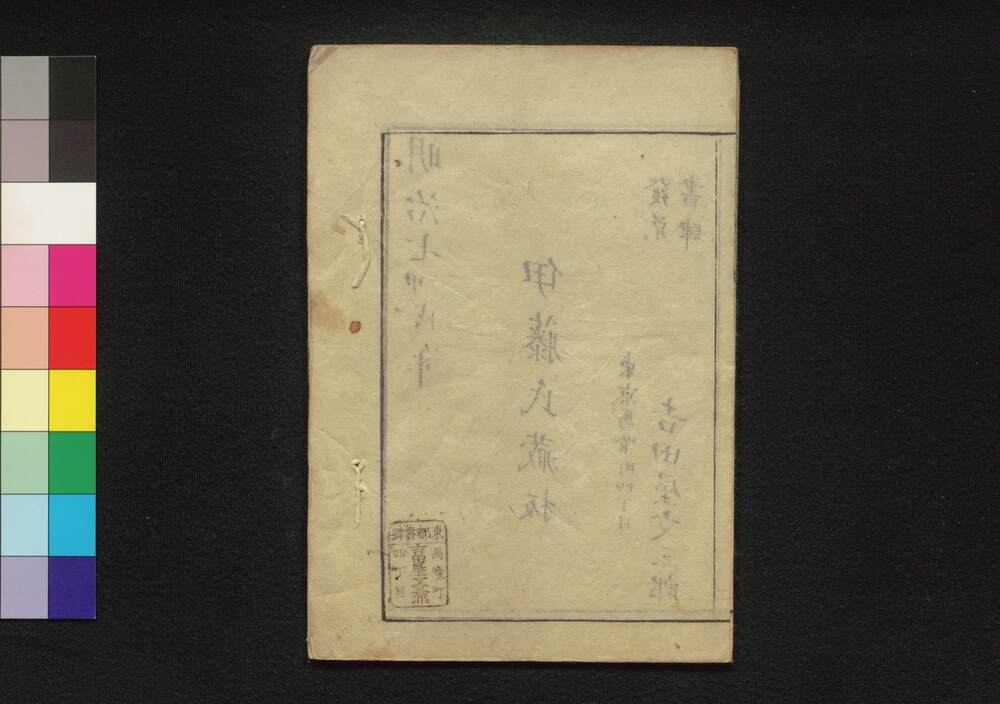 明治七甲戌年
伊藤氏藏板
東京馬喰町四丁目
發兌
書肆
吉田屋文三郎
東都書肆
馬喰町
四丁目